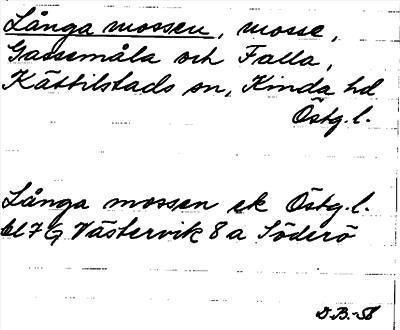 Långa mossen, mosse,
Gassemåla och Falla,
Kättilstads sn, Kinda hd
Östg. l.
Långa mossen ek Östg. l.
bl 7 G Västervik 8 a Söderö
D.B.-S